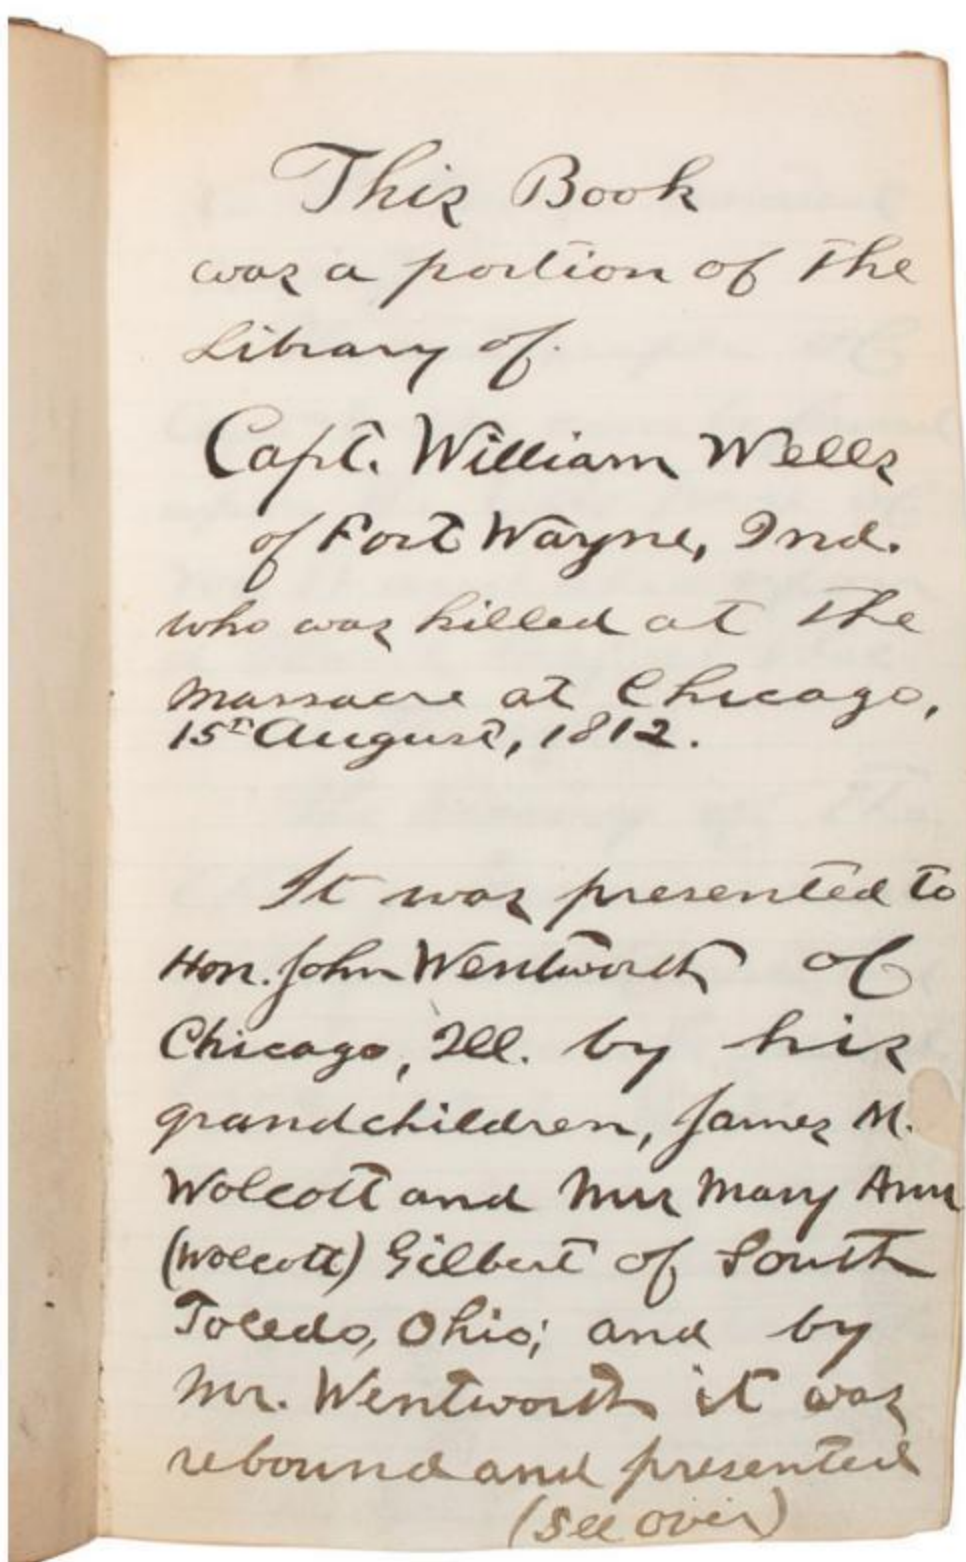 This Book
was a portion of the
Library of
Capt. William Wells
of Fort Wayne, Ind.
who was killed at the
massacre at Chicago,
15th August, 1812.
It was presented to
Hon. John Wentworth of
Chicago, Ill. by his
grandchildren, James M.
Wolcott and Mrs Mary Ann
(Wolcott) Gilbert of South
Toledo, Ohio; and by
Mr. Wentworth it was
rebound and presented
(See over)